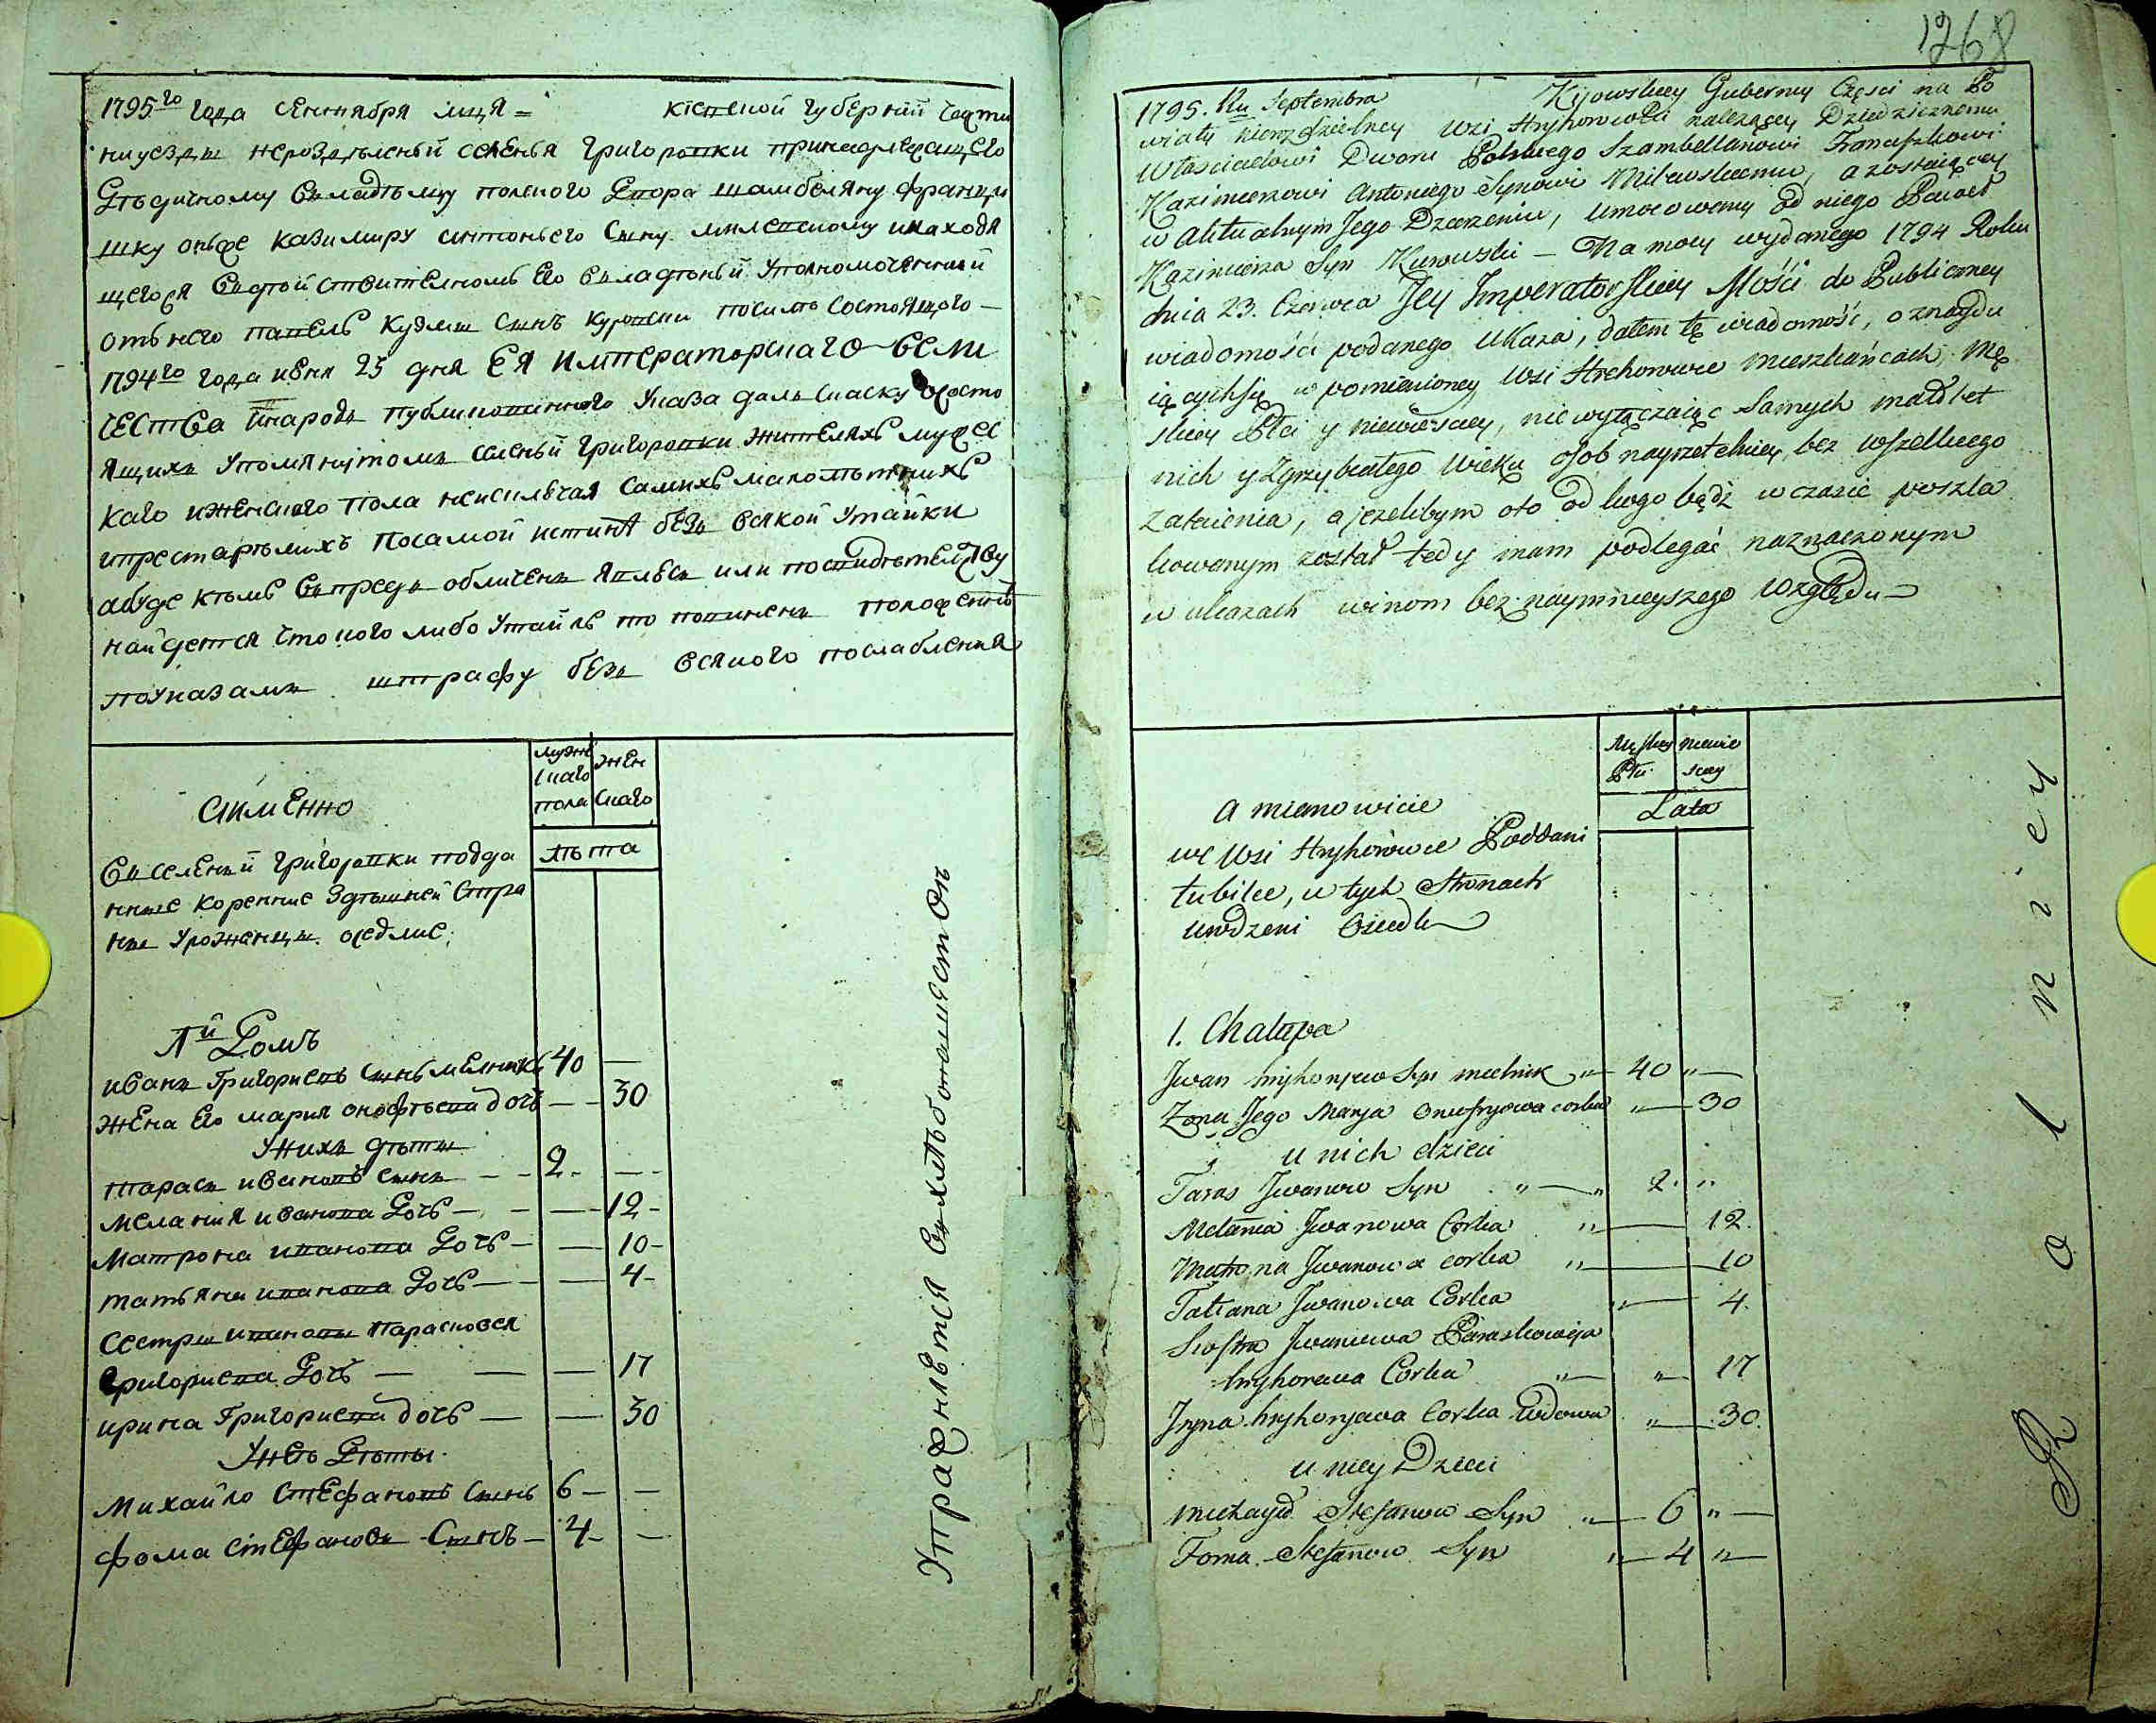 1795го года сентября мця = кіевской губерніи части
на уезды нероздѣленой селенья григоровки принадлежащего
Дѣдичному владѣлцу полского Двора шамбеляну францы
шку онъже казимиру антоньего сыну милевскому инаходя
щегося вдѣйствителномъ Его владѣньи уполномоченный
отъ него павелъ кузмы сынъ куровски посилѣ состоящого —
1794го года июня 23 дня ЕЯ императорскаго вели
чества внародъ публикованного указа далъ скаску ососто
ящихъ упомянутомъ селеньи григоровки жителяхъ мужес
каго иженского пола неисключая самихъ малолѣтнихъ
ипрестарѣлихъ посамой истинѣ безъ всякой утайки
абуде кѣмъ впредъ обличенъ явлюсь или посвидѣтелству
найдется что кого либо утаилъ то повиненъ положенно
поуказамъ штрафу безъ всякого послабления
Аимѣнно
мужескаго пола
женскаго
лѣта
Въ селеньи григоровки подда
нные коренные здѣшней стра
ны уроженцы оседлие
1й Домъ
иванъ григориевъ сынъ мелникъ 40 —
жена его мария онофрѣева дочь — — 30
Унихъ дѣты
тарасъ ивановъ сынъ — — 2 — —
мелания иванова дочь — — — 12 —
матрона иванова дочь — — 10 —
татьяна иванова дочь — — — 4 —
сестры ивановы парасковея
григориева дочь — — — 17
ирина григориева дочь — — 30
Унеѣ дѣты
михайло стефановъ сынъ 6 — —
фома стефановъ сынъ — 4 — —
Упражняется въ хлѣбопашествовъ
1268
1795. Ru Septembra Kijowskiey Guberny Części na Po
wiaty nierozdzielney Wsi Hryhorowki należącey Dziedzicznemu
Właścicielowi Dworu Polskiego Szambellanowi Franciszkowi
Kazimierzowi Antoniego Synowi Milewskiemu, a zostaiącey
w aktualnym Jego Dzierżeniu, umocowany od niego Paweł
Kazimierza Syn Kurowski — Na mocy wydanego 1794 Roku
dnia 23. Czerwca Jey Imperatorskiey Mości do Publiczney
wiadomości podanego Ukaza, dałem tę wiadomość, o znaydu
iących się w pomienioney Wsi Hrehorowce mieszkańcach, Mę
skiey Płci y niewieściey, nie wyłączaiąc Samych małolet
nich y Zgrzybiałego Wieku osób nayrzetelniey bez wszelkiego
Zataienia, a jeżelibym oto od kogo bądź w czasie poszla
kowanym został tedy mam podlegać naznaczonym
w ukazach winom bez naymnieyszego Względu —
a mianowicie
Męskiey Płci
niewieściey
Lata
we Wsi Hryhorówce Poddani
tubilce, w tych Stronach
urodzeni Osiedli
1. Chałupa
Jwan hryhoryew Syn mielnik „ — 40 „ —
Zona Jego Marya Onufryowa corka „ — 30
u nich dzieci
Taras Jwanow Syn „ — „ 2. „
Melania Jwanowa Corka „ — 12.
Matrona Jwanowa corka „ — 10
Tatiana Jwanowa Corka „ — 4.
Siostra Jwanowa Paraskowija
hryhorewa Corka „ — „ — 17
Jryna hryhoryewa Corka Wdowa „ — 30.
u niey Dzieci
Michayło Stefanow Syn „ — 6 „ —
Foma Stefanow Syn „ — 4 „ —
Rolniey